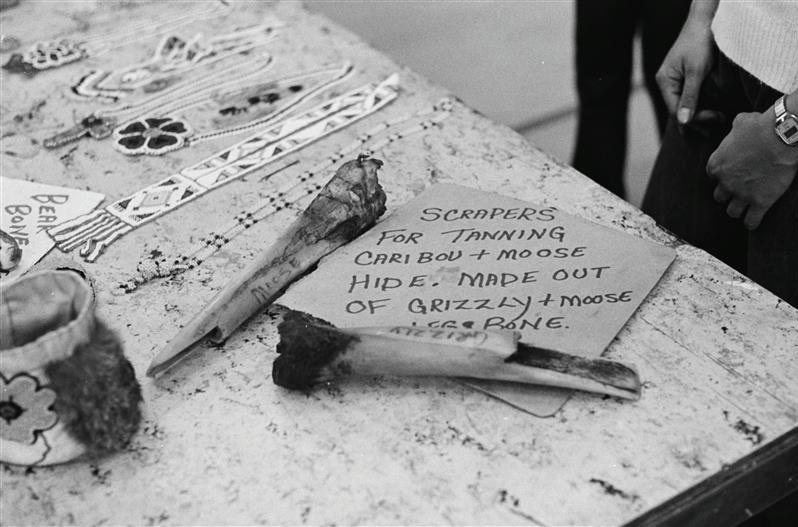 BEAR
BONE
SCRAPERS
FOR TANNING
CARIBOU + MOOSE
HIDE. MADE OUT
OF GRIZZLY + MOOSE
LEG BONE.
MOOSE
GRIZZLY